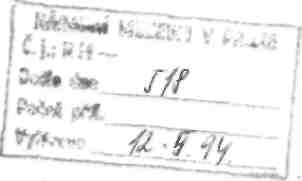 NÁRODNÍ MUZEUM V PRAZE
Č.j.:
Došlo dne 518
Počet příl.
Vyřízeno 12. 5. 94.